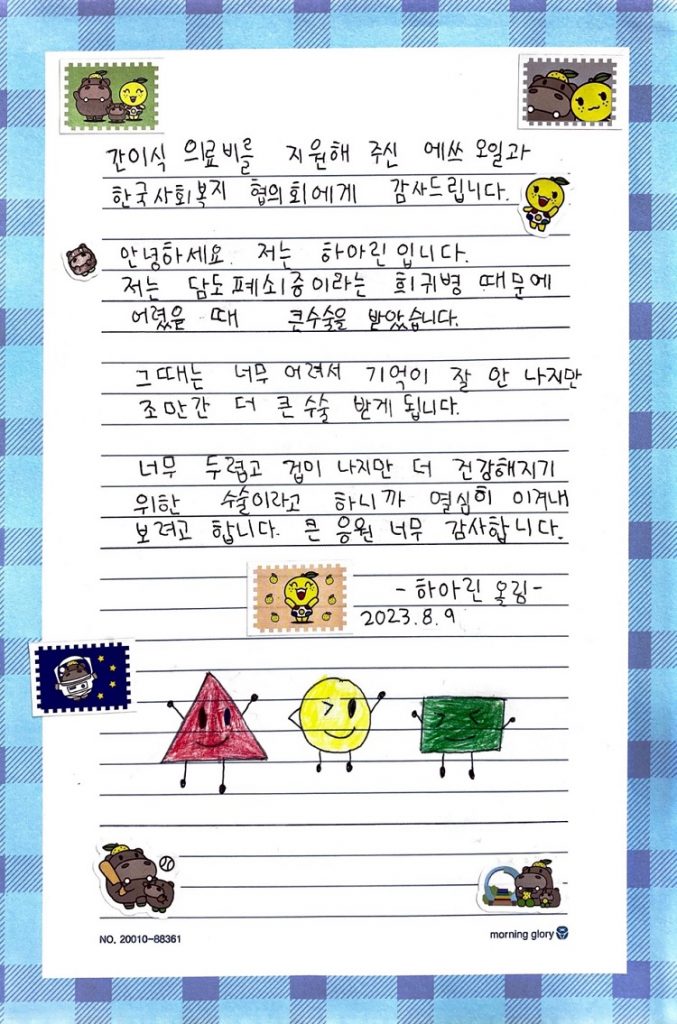 간이식 의료비를 지원해 주신 에쓰 오일과
한국사회복지 협의회에게 감사드립니다.
안녕하세요. 저는 하아린입니다.
저는 담도폐쇠증이라는 희귀병 때문에
어렸을 때 큰수술을 받았습니다.
그때는 너무 어려서 기억이 잘 안 나지만
조만간 더 큰 수술 받게 됩니다.
너무 두렵고 겁이 나지만 더 건강해지기
위한 수술이라고 하니까 열심히 이겨내
보려고 합니다. 큰 응원 너무 감사합니다.
- 하아린 올림 -
2023.8.9
NO. 20010-88361
morning glory